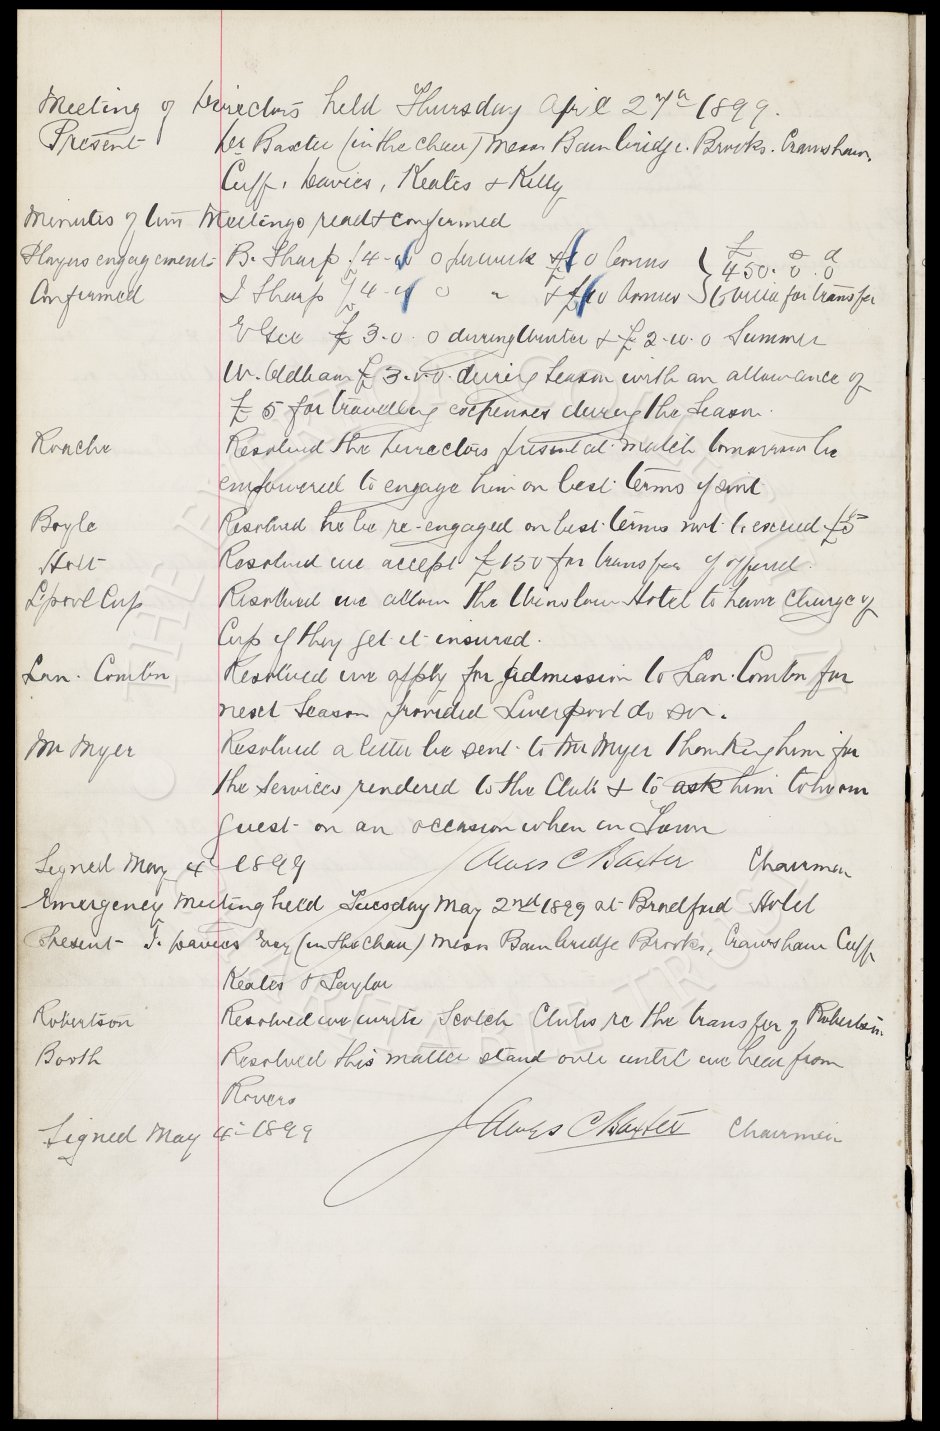 Meeting of Directors held Thursday April 27th 1899.
Present Dr Baxter (in the chair) Messrs Bainbridge. Brooks. Crawshaw,
Cuff, Davies, Keates & Kelly
Minutes of two Meetings read & confirmed
Players engagement B. Sharp £4-0 0 per week & £ 0 bonus £ s d
450. 0. 0
Confirmed J Sharp £4-0 0 " & £10 bonus to Villa for transfer
E Gee £3.0.0 during Winter & £2-10.0 Summer
W. Oldham £3.0.0. during Season with an allowance of
£5 for travelling expenses during the Season.
Roache Resolved the Directors present at match tomorrow be
empowered to engage him on best terms
Boyle Resolved he be re-engaged on best terms not to exceed £5
Holt Resolved we accept £150 for transfer if offered.
Lpool Cup Resolved we allow the Winslow Hotel to have charge of
Cup if they get it insured.
Lan. Combn Resolved we apply for admission to Lan. Combn for
next Season provided Liverpool do so.
Mr Myer Resolved a letter be sent to Mr Myer thanking him for
the services rendered to the Club & to ask him to be our
guest on an occasion when in Town
Signed May 4th 1899 James C Baxter Chairman
Emergency Meeting held Tuesday May 2nd 1899 at Bradford Hotel
Present J. Davies Esq (in the Chair) Messrs Bainbridge Brooks, Crawshaw Cuff
Keates & Taylor
Robertson Resolved we write Scotch Clubs re the transfer of Robertson
Booth Resolved this matter stand over until we hear from
Rovers
Signed May 4th 1899 James C Baxter Chairman